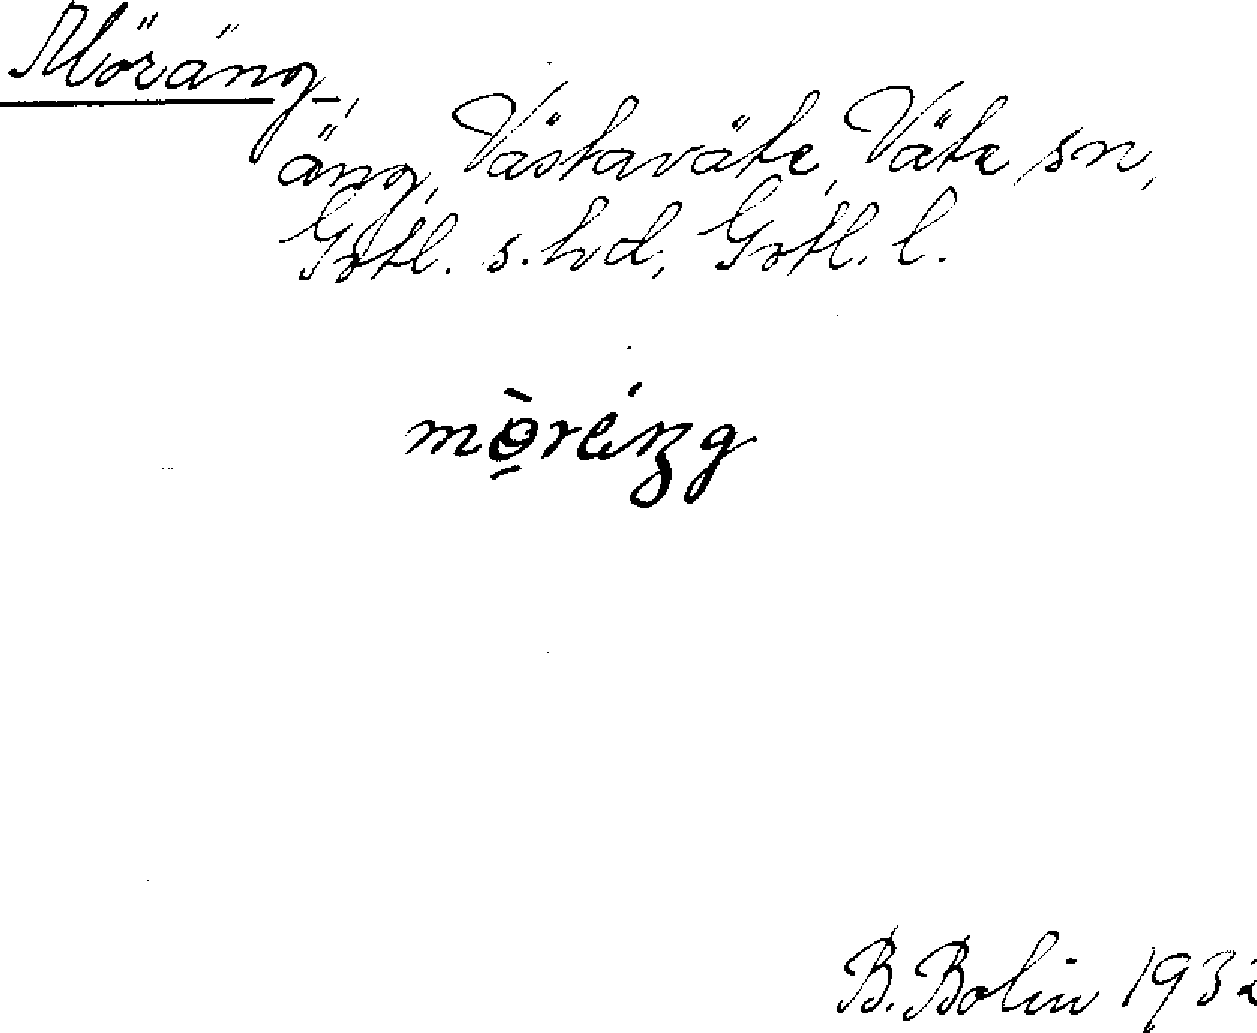 Möräng
äng, Västerväte, Väte sn,
Gotl. s. hd, Gotl. l.
B. Bolin 1932